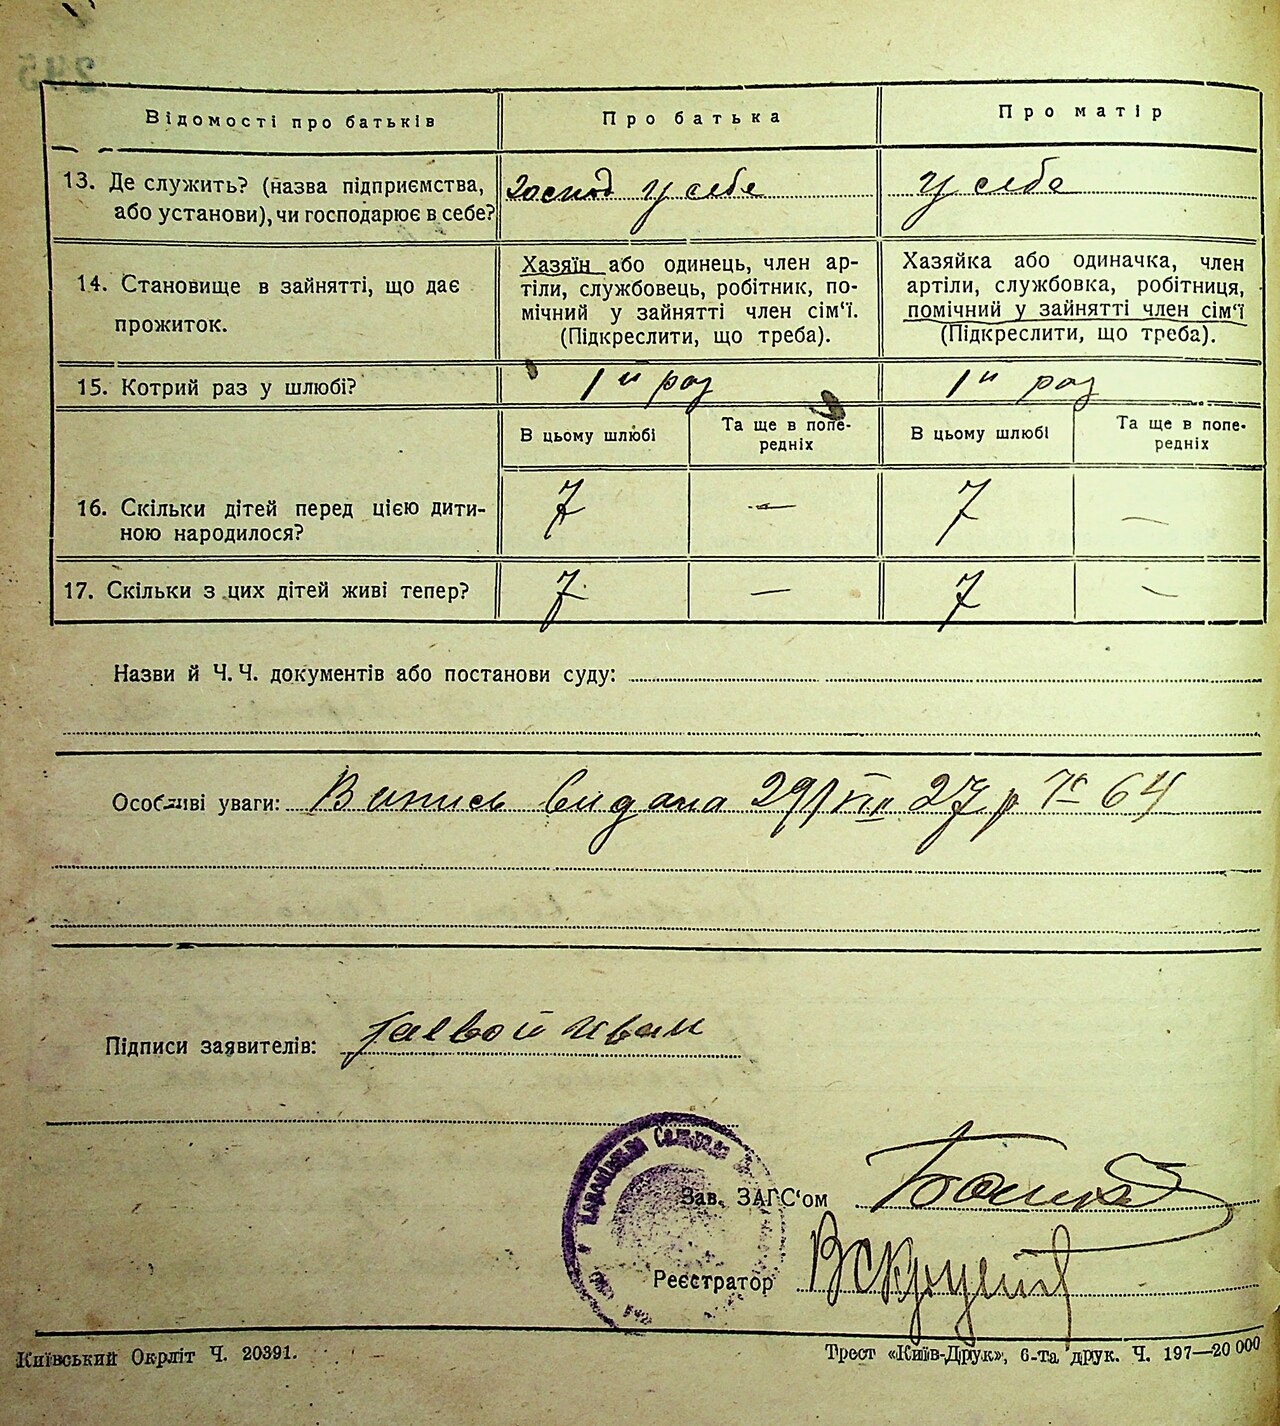 Відомості про батьків
Про батька
Про матір
13. Де служить? (назва підприємства,
або установи), чи господарює в себе?
господ у себе
у себе
14. Становище в зайнятті, що дає
прожиток.
Хазяїн або одинець, член ар-
тіли, службовець, робітник, по-
мічний у зайнятті член сім'ї.
(Підкреслити, що треба).
Хазяйка або одиначка, член
артіли, службовка, робітниця,
помічний у зайнятті член сім'ї
(Підкреслити, що треба).
15. Котрий раз у шлюбі?
1й раз
1й раз
В цьому шлюбі
Та ще в попе-
редніх
В цьому шлюбі
Та ще в попе-
редніх
16. Скільки дітей перед цією дити-
ною народилося?
7
—
7
—
17. Скільки з цих дітей живі тепер?
7
—
7
—
Назви й Ч. Ч. документів або постанови суду:
Особливі уваги: Випись видана 29/VIII 27 р № 64
Підписи заявителів: Гаевой Иван
Зав. ЗАГС'ом
Реєстратор
Київський Окрліт Ч. 20391.
Трест «Київ-Друк», 6-та друк. Ч. 197—20 000